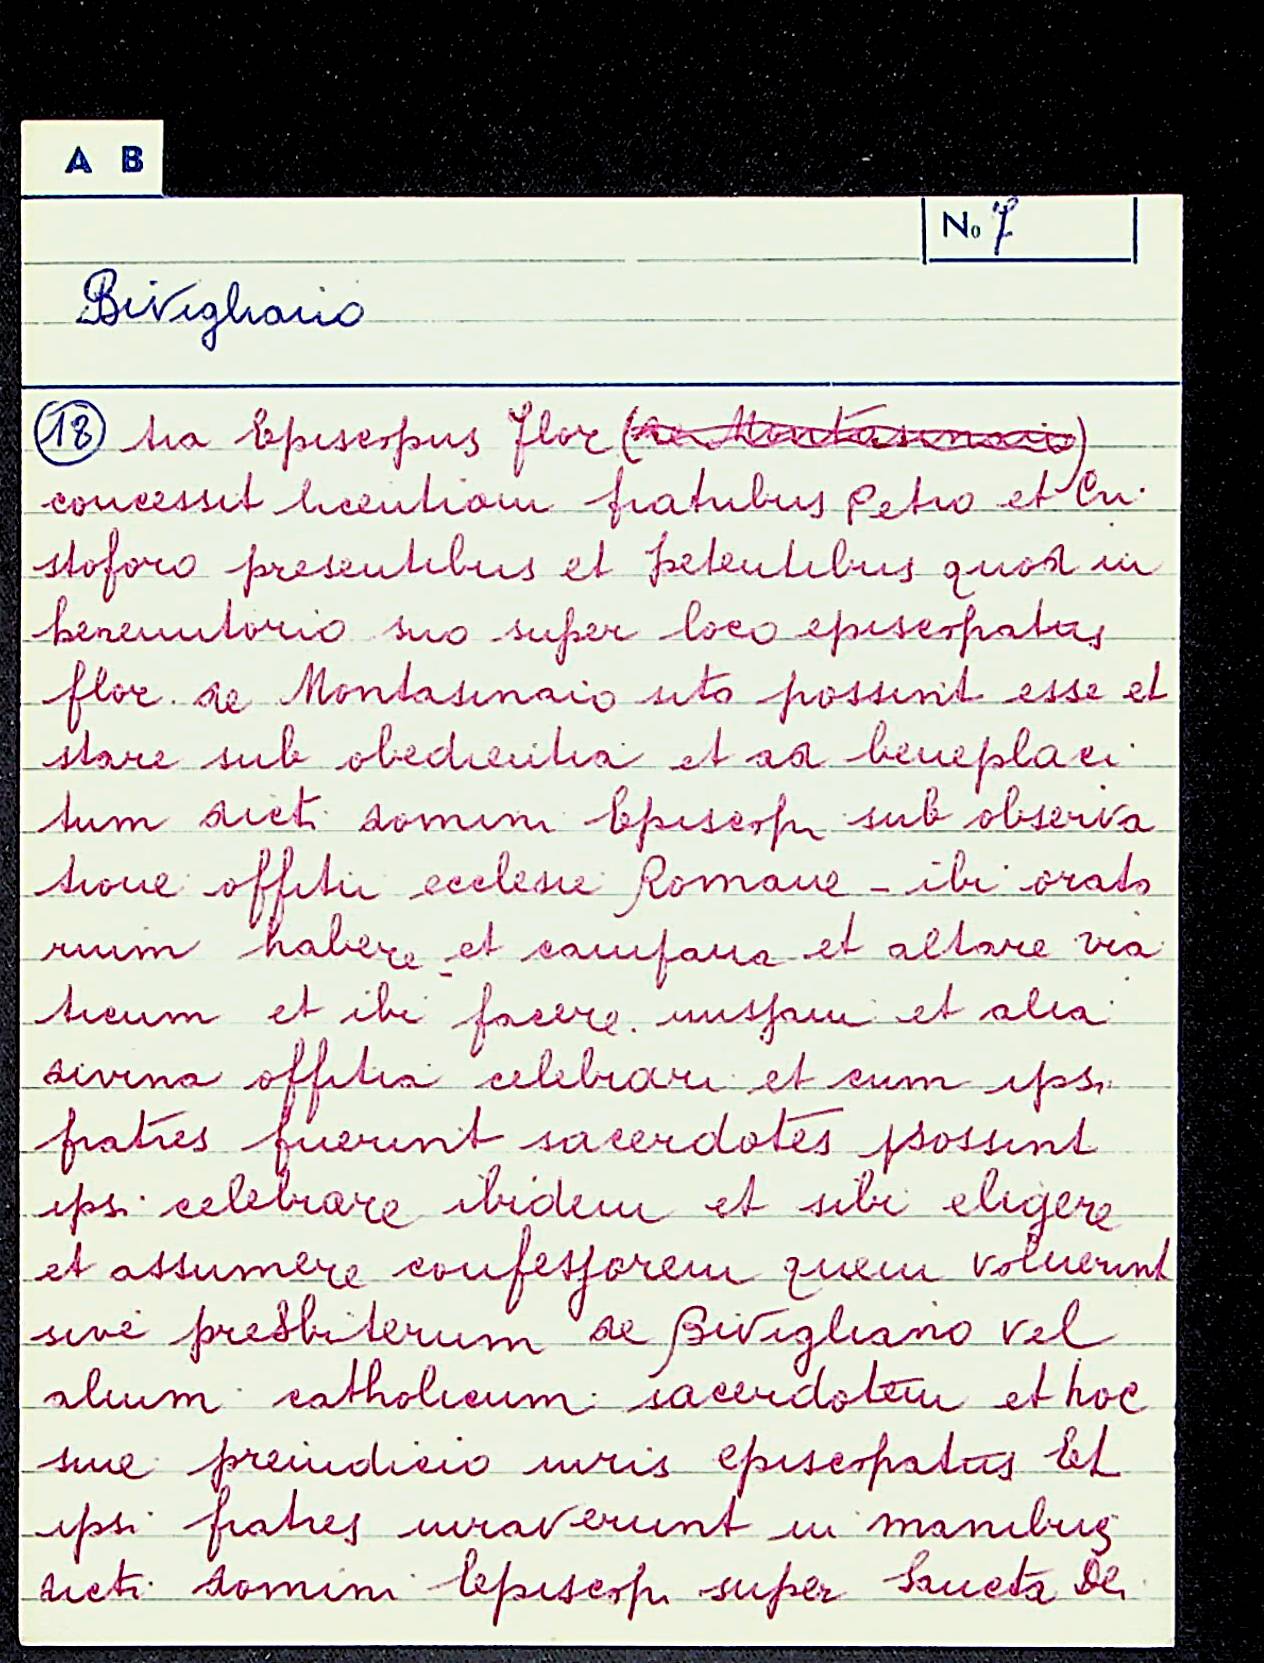 A B
No 7
Bivigliano
18 tia Episcopus Flor (de Montasinaio)
concessit licentiam fratribus Petro et Cri
stoforo presentibus et petentibus quod in
heremitorio suo super loco episcopatus
flor. de Montasinaio sito possint esse et
stare sub obedientia et ad beneplaci
tum dicti domini Episcopi sub observa
tione offitii ecclesie Romane - ibi orato
rium habere et campana et altare via
ticum et ibi facere missam et alia
divina offitia celebrari et cum ipsi
fratres fuerint sacerdotes possint
ipsi celebrare ibidem et sibi eligere
et assumere confessorem quem voluerint
sive presbiterum de Bivigliano vel
alium catholicum sacerdotem et hoc
sine preiudicio iuris episcopatus Et
ipsi fratres iuraverunt in manibus
dicti domini Episcopi super Sancta Dei